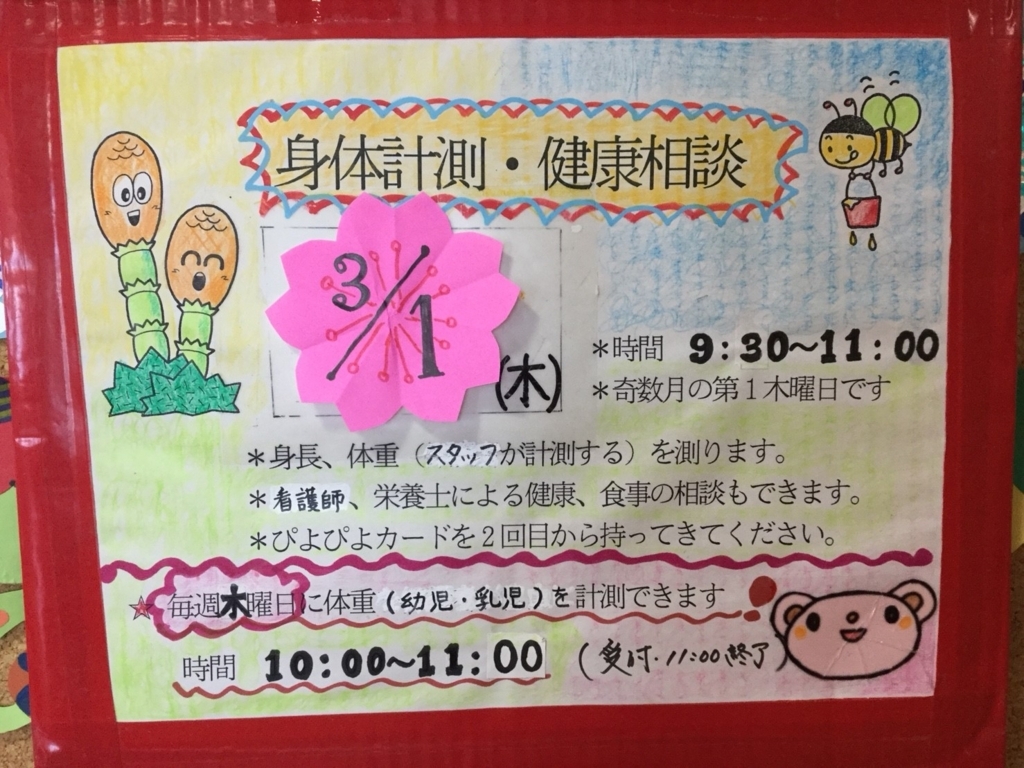 身体計測・健康相談
3/1
(木)
＊時間 9：30～11：00
＊奇数月の第1木曜日です
＊身長、体重（スタッフが計測する）を測ります。
＊看護師、栄養士による健康、食事の相談もできます。
＊ぴよぴよカードを2回目から持ってきてください。
☆毎週木曜日に体重(幼児・乳児)を計測できます
時間 10：00～11：00 (受付・11:00終了)